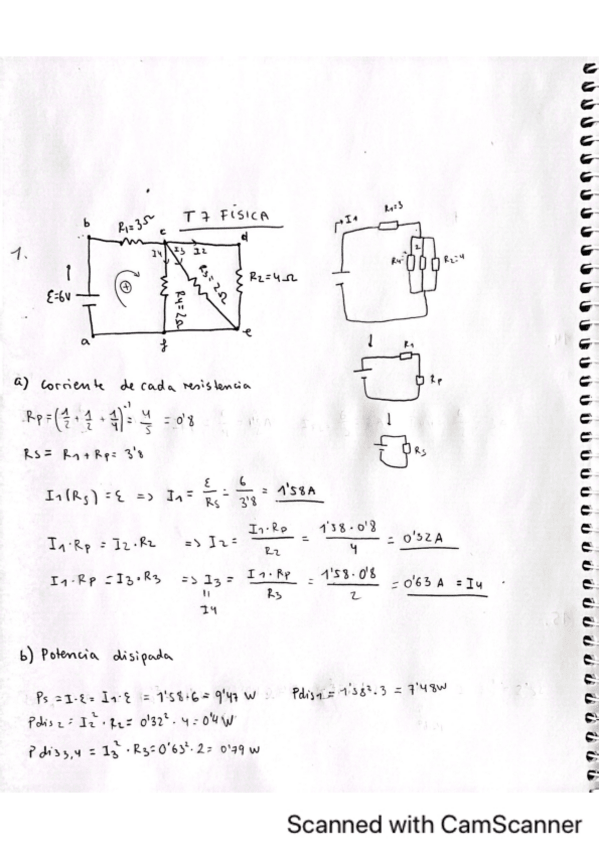 T7 FÍSICA
1.
b R1=3Ω c d
I4 I3 I2
ε=6V + R4=2Ω R3=2Ω R2=4Ω
a f e
I1 R1=3
R4=2 2 R2=4
R1
Rp
Rs
a) Corriente de cada resistencia
Rp=(1/2+1/2+1/4)^-1=4/5=0'8
Rs= R1+Rp= 3'8
I1(Rs)=ε => I1= ε/Rs = 6/3'8 = 1'58A
I1·Rp = I2·R2 => I2= I1·Rp/R2 = 1'58·0'8/4 = 0'32A
I1·Rp = I3·R3 => I3= I1·Rp/R3 = 1'58·0'8/2 = 0'63 A = I4
=
I4
b) Potencia disipada
Ps = I·ε= I1·ε = 1'58·6= 9'47 W Pdis1= 1'58²·3 = 7'48W
Pdis2= I2²·R2= 0'32²·4=0'4W
Pdis3,4 = I3²·R3=0'63²·2= 0'79 W
Scanned with CamScanner